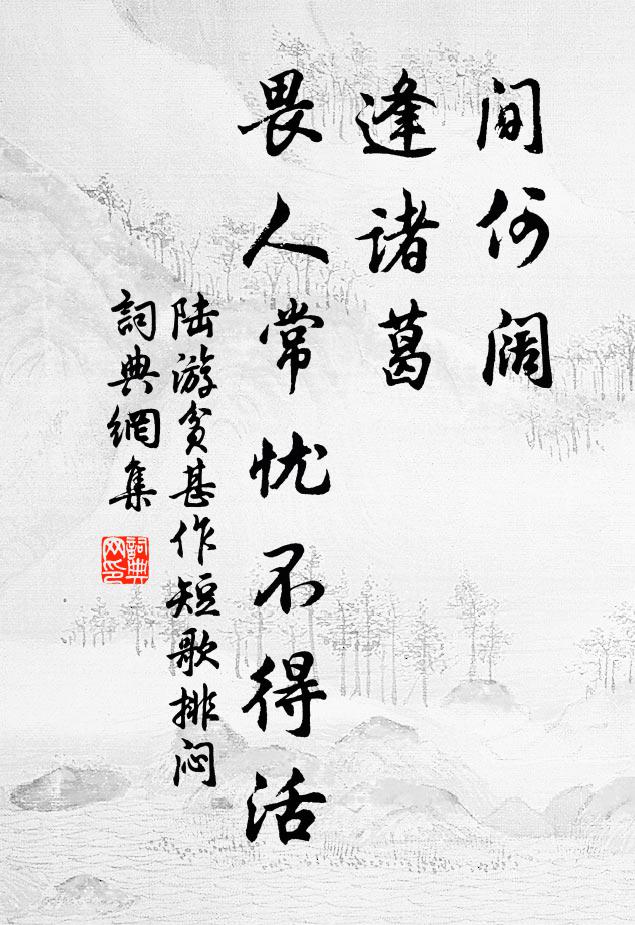 间何阔
逢诸葛
畏人常忧不得活
陆游贫甚作短歌排闷
詞典網集
詞典网印